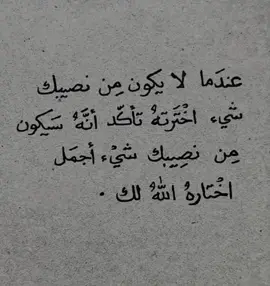 عندَما لا يكون مِن نصيبك
شيء اخْتَرتهُ تأكّد أنَّهُ سَيكون
مِن نصِيبك شيْء أجمَل
اخْتَارهُ اللهُ لك .